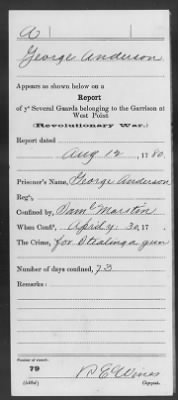 A
George Anderson
Appears as shown below on a
Report
of yᵉ Several Guards belonging to the Garrison at
West Point
(Revolutionary War.)
Report dated
Aug 12, 1780.
Prisoner's Name, George Anderson
Reg't,
Confined by, Samˡ Marston
When Conf'd, April 30, 17
The Crime, for Stealing a gun
Number of days confined, 73
Remarks:
Number of record:
79
Copyist.